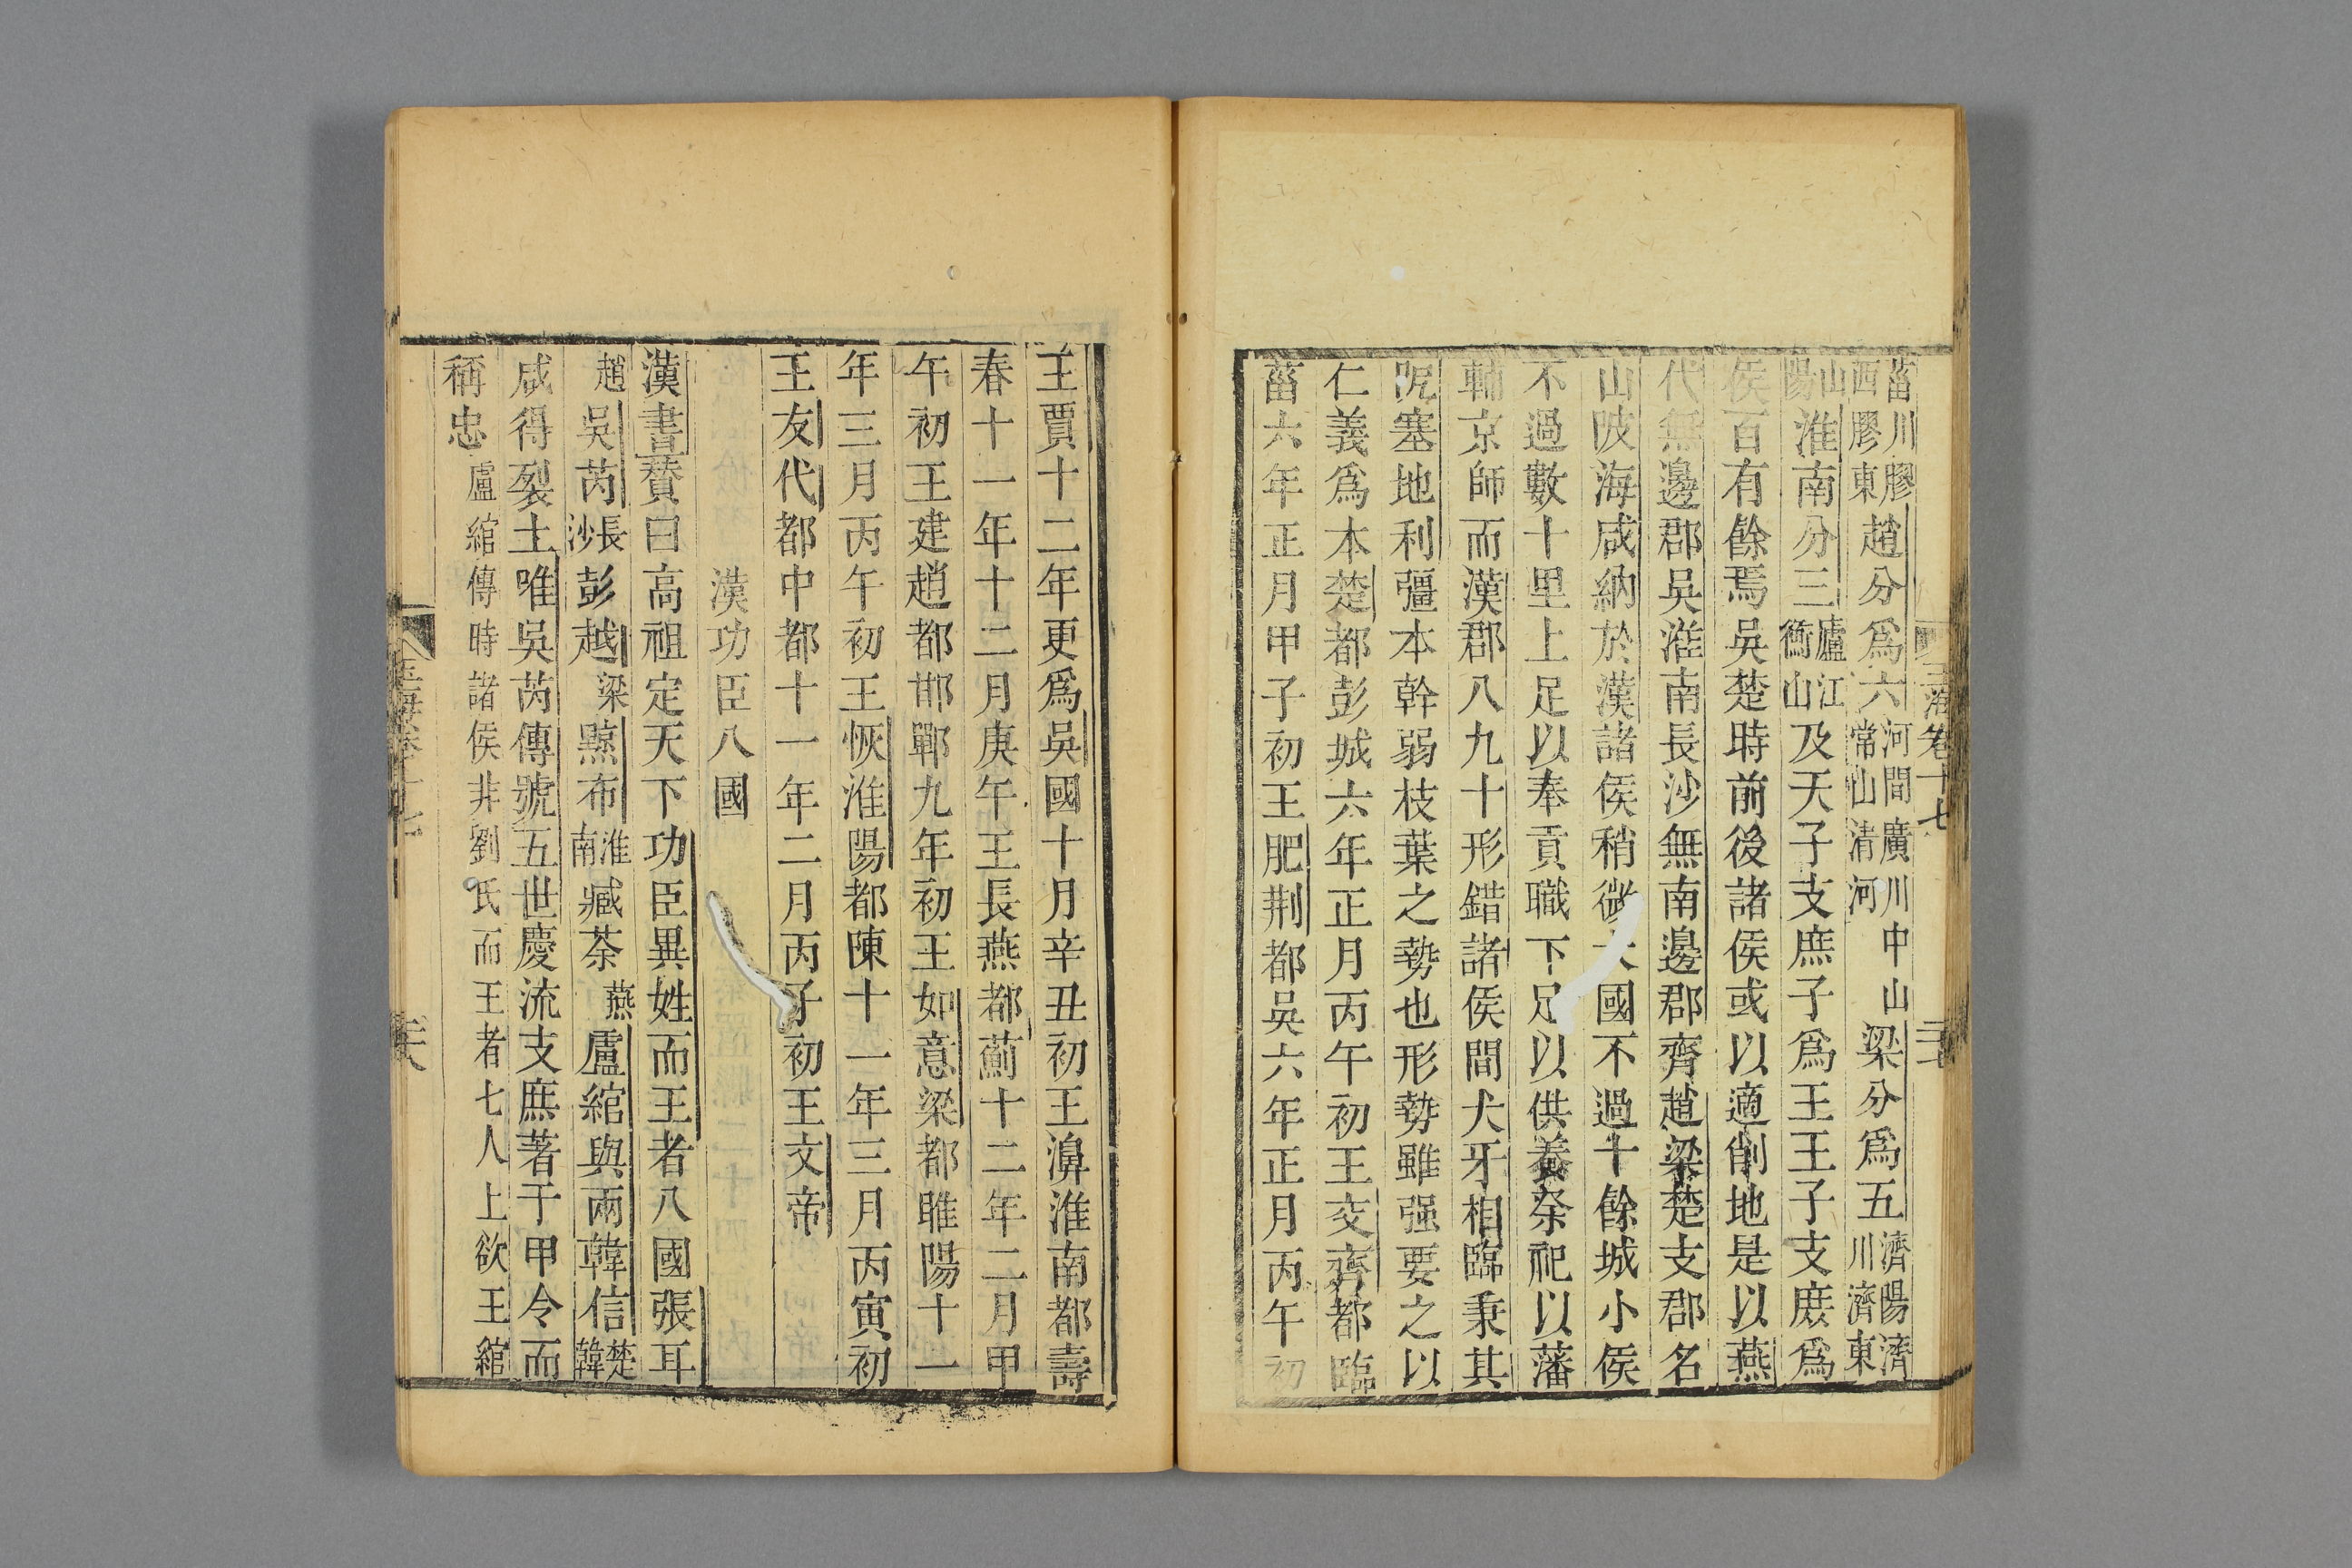 玉海卷十七
菑川膠西膠東趙分爲六河間廣川中山常山清河梁分爲五濟陽濟川濟東
山陽淮南分三廬江衡山及天子支庶子爲王王子支庶爲
侯百有餘焉吳楚時前後諸侯或以適削地是以燕
代無邊郡吳淮南長沙無南邊郡齊趙梁楚支郡名
山陂海咸納於漢諸侯稍微大國不過十餘城小侯
不過數十里上足以奉貢職下足以供養祭祀以藩
輔京師而漢郡八九十形錯諸侯間犬牙相臨秉其
阸塞地利彊本幹弱枝葉之勢也形勢雖强要之以
仁義爲本楚都彭城六年正月丙午初王交齊都臨
菑六年正月甲子初王肥荆都吳六年正月丙午初
王賈十二年更爲吳國十月辛丑初王濞淮南都壽
春十一年十二月庚午王長燕都薊十二年二月甲
午初王建趙都邯鄲九年初王如意梁都睢陽十一
年三月丙午初王恢淮陽都陳十一年三月丙寅初
王友代都中都十一年二月丙子初王文帝
漢功臣八國
漢書贊曰高祖定天下功臣異姓而王者八國張耳
趙吳芮長沙彭越梁黥布淮南臧荼燕盧綰與兩韓信楚韓
咸得裂土唯吳芮傳號五世慶流支庶著于甲令而
稱忠盧綰傳時諸侯非劉氏而王者七人上欲王綰
玉海卷十七